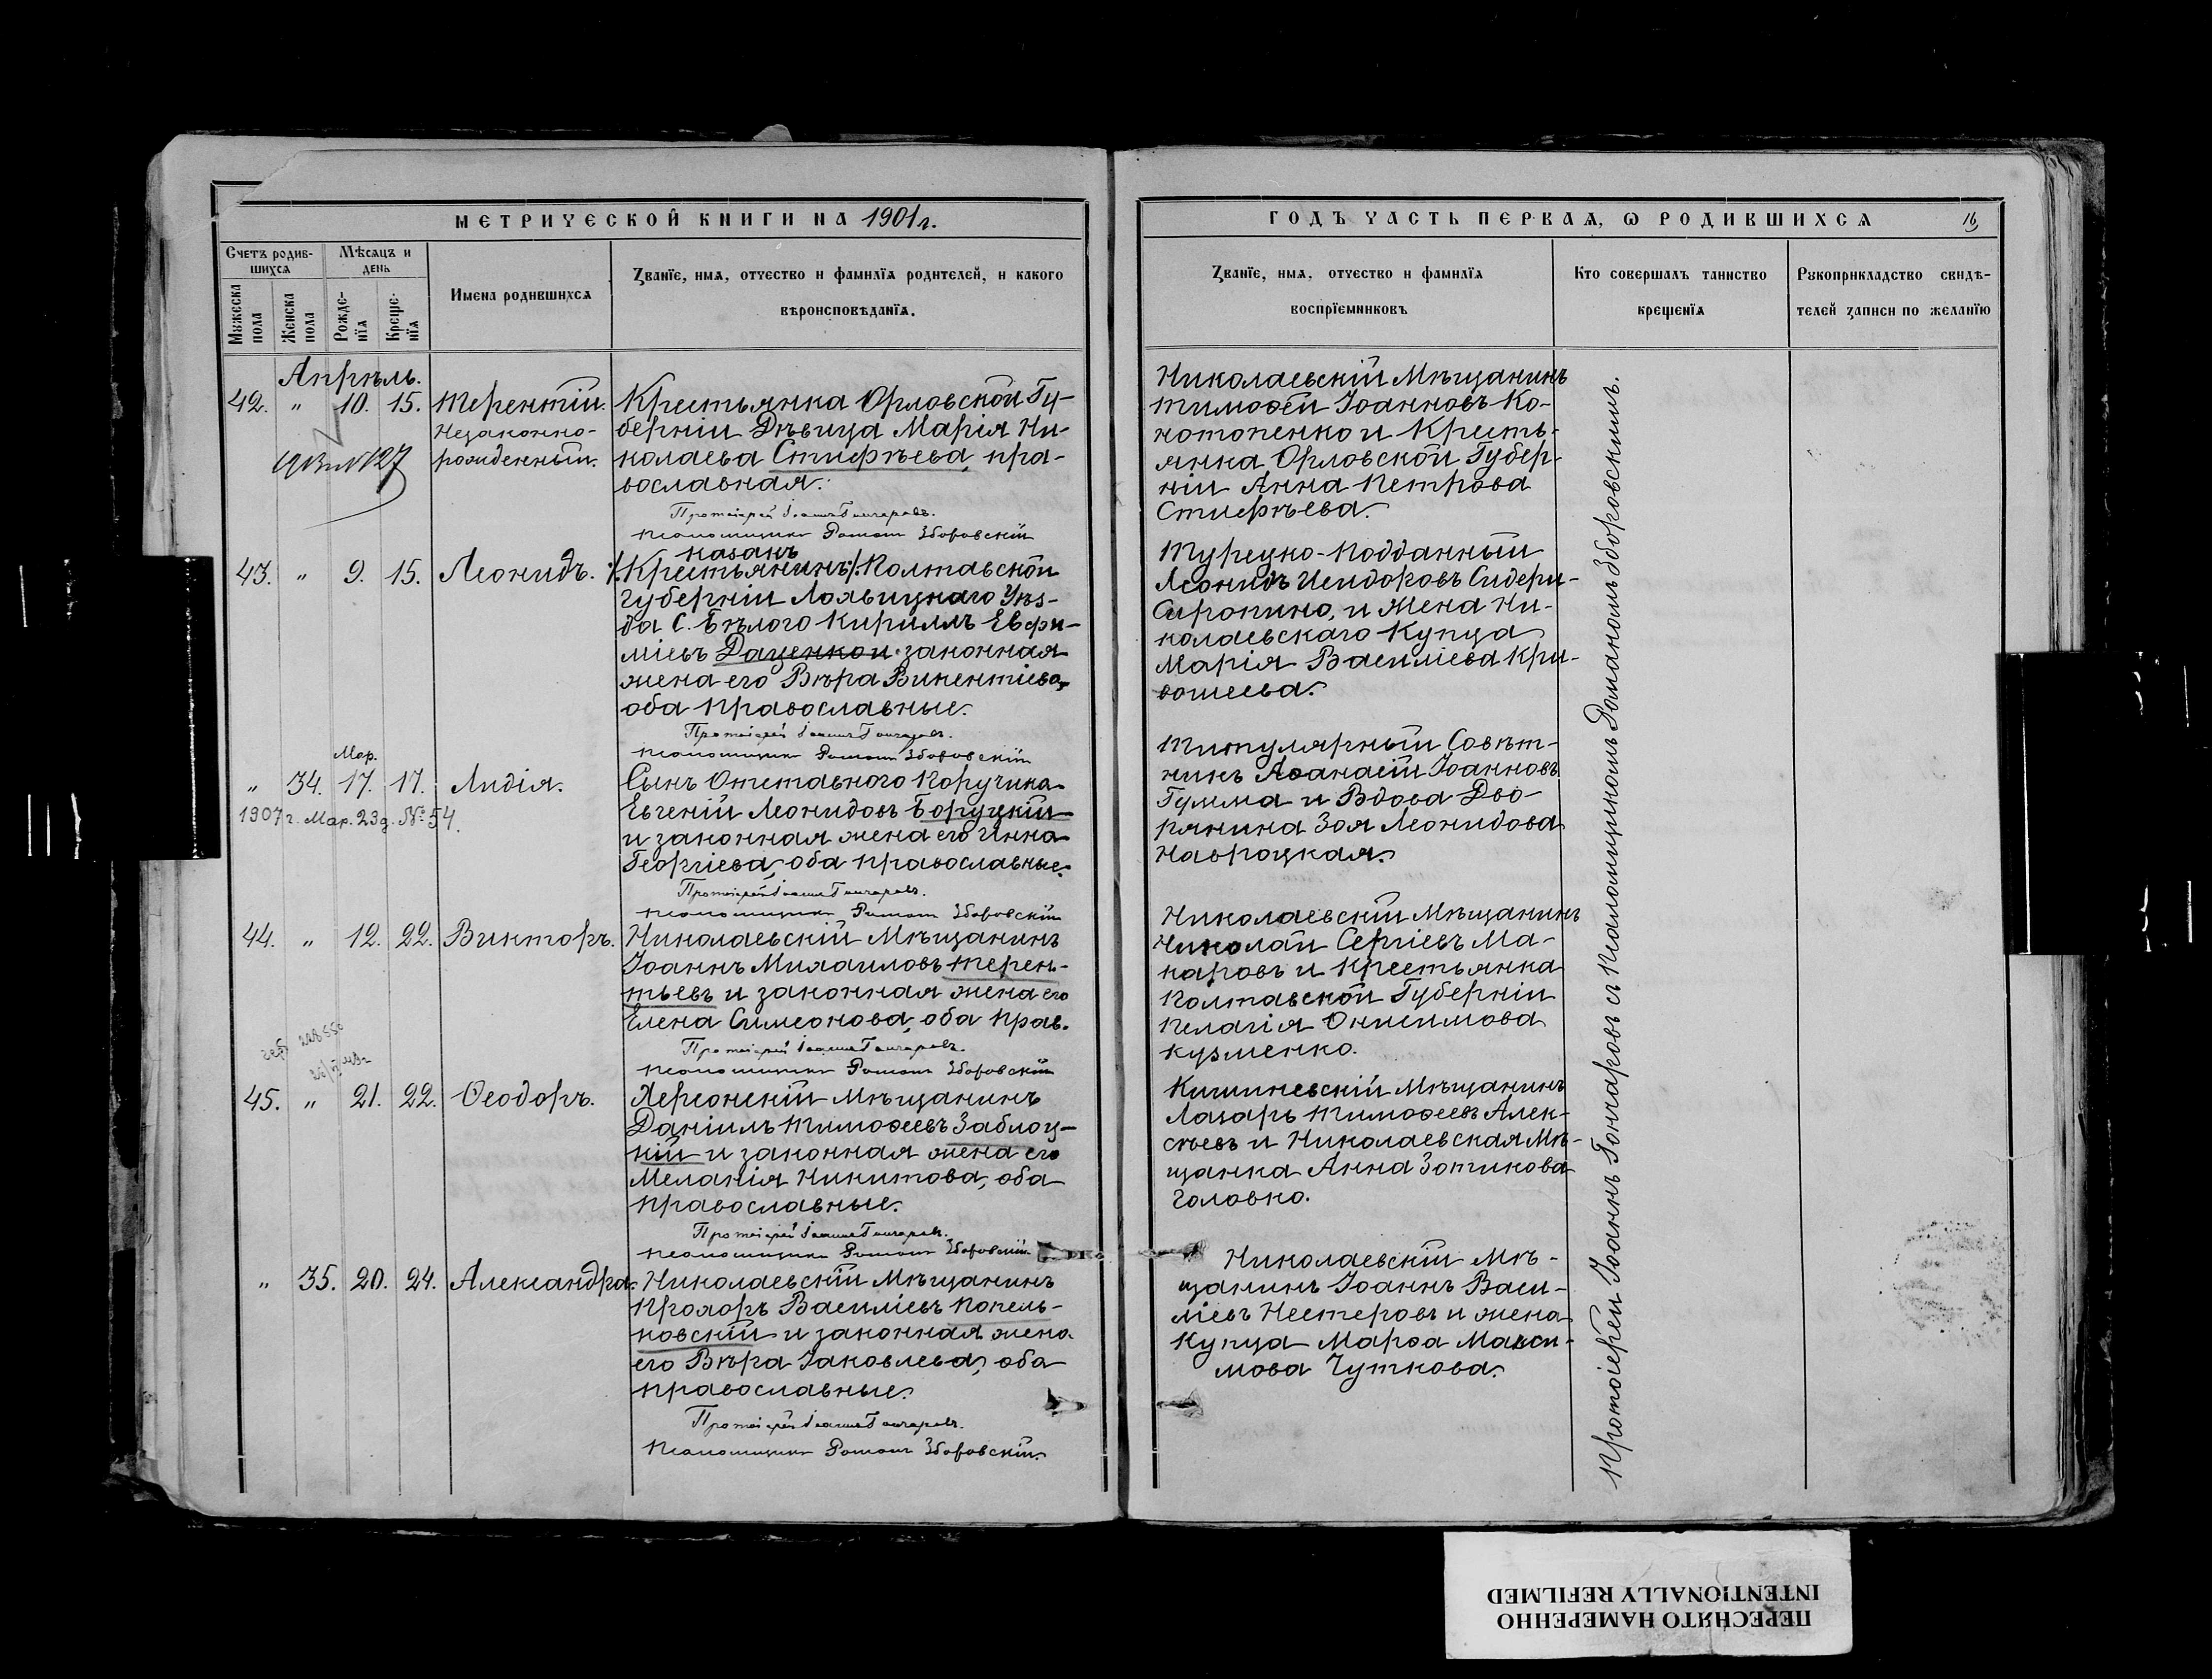 МЕТРИЧЕСКОЙ КНИГИ НА 1901 г.
Счетъ родив-
шихся
Мѣсяцъ и
день
Мужеска
пола
Женска
пола
Рожде-
нїя
Креще-
нїя
Имена родившихся
Званїе, имя, отчество и фамилїя родителей, и какого
вѣроисповѣданїя.
Апрѣль.
42. " 10. 15. Терентій.
Незаконно-
рожденный.
Крестьянка Орловской Гу-
берніи Дѣвица Марія Ни-
колаева Стифѣева, пра-
вославная.
Протоіерей Іоаннъ Гончаровъ.
Псаломщикъ Романъ Зборовскій
казакъ
43. " 9. 15. Леонидъ.
/.Крестьянинъ/. Полтавской
Губерніи Лохвицкаго Уѣз-
да С. Бѣлого Кириллъ Евфи-
міевъ Даценко и законная
жена его Вѣра Викентіева,
оба православные.
Протоіерей Іоаннъ Гончаровъ.
Псаломщикъ Романъ Зборовскій
Мар.
" 34. 17. 17. Лидія.
1907 г. Мар. 23 д. № 54.
Сынъ Отставного Поручика
Евгеній Леонидовъ Боруцкій
и законная жена его Инна
Георгіева, оба православные.
Протоіерей Іоаннъ Гончаровъ.
Псаломщикъ Романъ Зборовскій
44. " 12. 22. Викторъ.
Николаевскій Мѣщанинъ
Іоаннъ Михаиловъ Терен-
тьевъ и законная жена его
Елена Симеонова, оба прав.
Протоіерей Іоаннъ Гончаровъ.
Псаломщикъ Романъ Зборовскій
45. " 21. 22. Ѳеодоръ.
Херсонскій мѣщанинъ
Даніилъ Тимоѳеевъ Заблоц-
кій и законная жена его
Меланія Никитова, оба
православные.
Протоіерей Іоаннъ Гончаровъ.
Псаломщикъ Романъ Зборовскій
" 35. 20. 24. Александра.
Николаевскій Мѣщанинъ
Прохоръ Василіевъ Попель-
ковскій и законная жена
его Вѣра Іаковлева, оба
православные.
Протоіерей Іоаннъ Гончаровъ.
Псаломщикъ Романъ Зборовскій.
ГОДЪ ЧАСТЬ ПЕРВАЯ, Ѡ РОДИВШИХСЯ
16
Званїе, имя, отчество и фамилїя
воспрїемниковъ
Кто совершалъ таинство
крещенїя
Рукоприкладство свидѣ-
телей записи по желанїю
Николаевскій Мѣщанинъ
Тимоѳей Іоанновъ Ко-
нотопенко и Кресть-
янка Орловской Губер-
ніи Анна Петрова
Стифѣева.
Турецко-подданный
Леонидъ Исидоровъ Сидери-
Сиропино, и жена Ни-
колаевскаго Купца
Марія Василіева Кри-
вошеева.
Титулярный Совѣт-
никъ Аѳанасій Іоанновъ
Гумма и Вдова Дво-
рянина Зоя Леонидова
Навроцкая.
Николаевскій Мѣщанинъ
Николай Сергіевъ Ма-
каровъ и крестьянка
Полтавской Губерніи
Пелагія Онисимова
Кузменко.
Кишиневскій Мѣщанинъ
Лазарь Тимоѳеевъ Алек-
сѣевъ и Николаевская Мѣ-
щанка Анна Зотикова
Головко.
Николаевскій Мѣ-
щанинъ Іоаннъ Васи-
ліевъ Нестеровъ и жена
Купца Марѳа Макси-
мова Чуткова.
Протоіерей Іоаннъ Гончаровъ съ Псаломщикомъ Романомъ Зборовскимъ.
ПЕРЕСНЯТО НАМЕРЕННО
INTENTIONALLY REFILMED